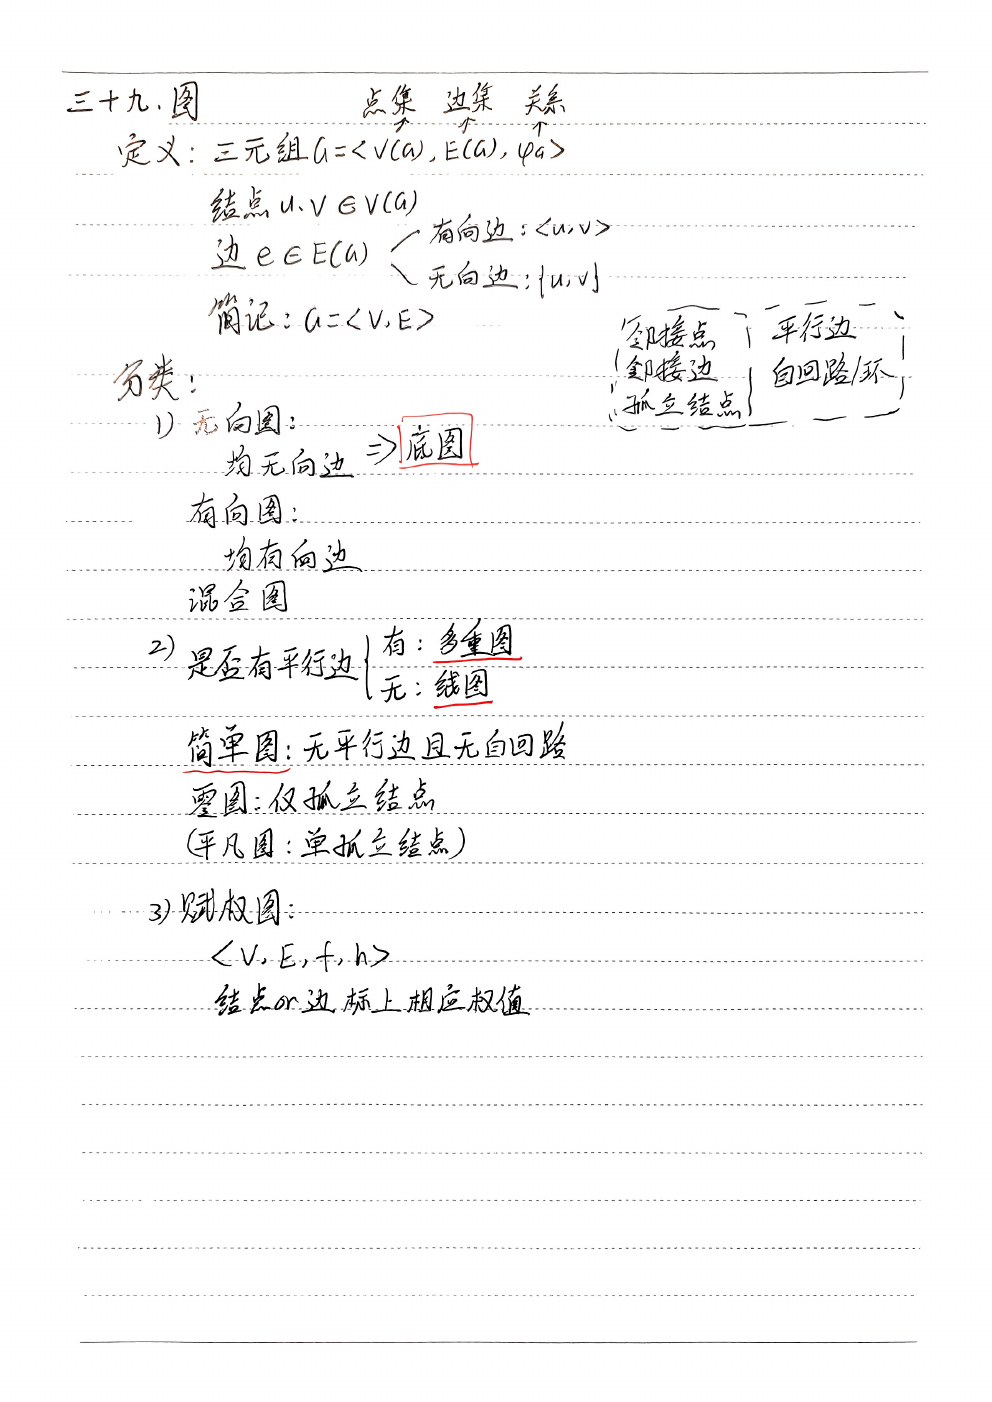 三十九.图
点集 边集 关系
定义：三元组G=<V(G),E(G),φG>
结点u、v∈V(G)
边e∈E(G)
有向边：<u,v>
无向边：{u,v}
简记：G=<V,E>
邻接点
邻接边
孤立结点
平行边
自回路/环
分类：
1) 无向图：
均无向边 => 底图
有向图：
均有向边
混合图
2) 是否有平行边
有：多重图
无：线图
简单图：无平行边且无自回路
零图：仅孤立结点
(平凡图：单孤立结点)
3) 赋权图：
<V,E,f,h>
结点or边标上相应权值